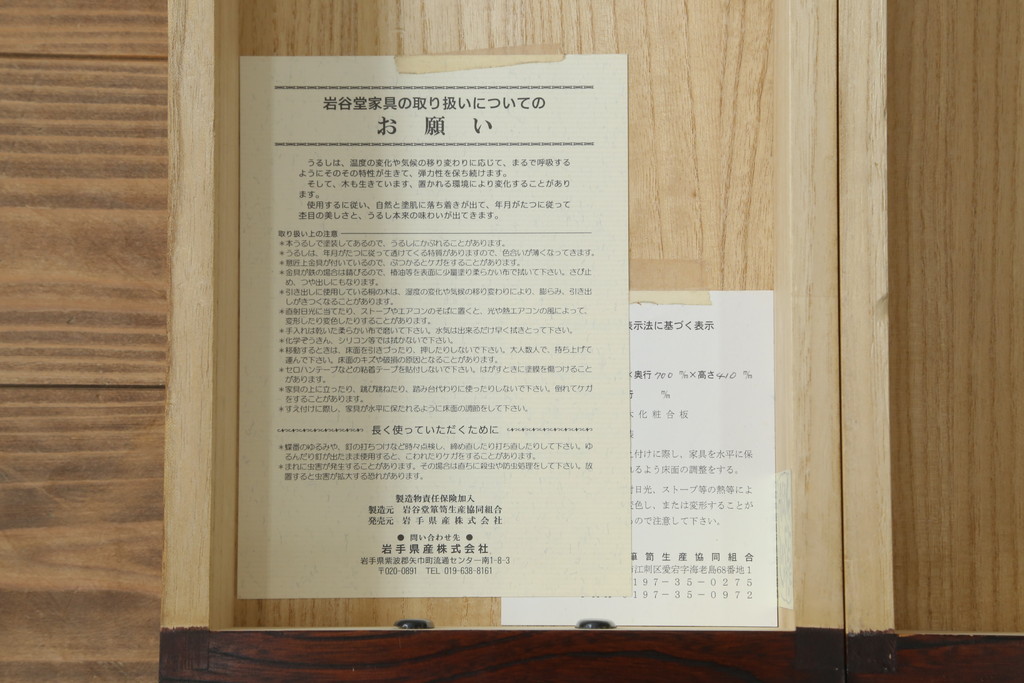 岩谷堂家具の取り扱いについての
お願い
うるしは、温度の変化や気候の移り変わりに応じて、まるで呼吸する
ようにそのその特性が生きて、弾力性を保ち続けます。
そして、木も生きています、置かれる環境により変化することがあり
ます。
使用するに従い、自然と塗肌に落ち着きが出て、年月がたつに従って
杢目の美しさと、うるし本来の味わいが出てきます。
取り扱い上の注意
＊本うるしで塗装してあるので、うるしにかぶれることがあります。
＊うるしは、年月がたつに従って透けてくる特質がありますので、色合いが薄くなってきます。
＊意匠上金具が付いているので、ぶつかるとケガをすることがあります。
＊金具が鉄の場合は錆びるので、椿油等を表面に少量塗り柔らかい布で拭いて下さい。さび止
め、つや出しにもなります。
＊引き出しに使用している桐の木は、湿度の変化や気候の移り変わりにより、膨らみ、引き出
しがきつくなることがあります。
＊直射日光に当てたり、ストーブやエアコンのそばに置くと、光や熱エアコンの風によって、
変形したり変色したりすることがあります。
＊手入れは乾いた柔らかい布で磨いて下さい。水気は出来るだけ早く拭きとって下さい。
＊化学ぞうきん、シリコン等では拭かないで下さい。
＊移動するときは、床面を引きづったり、押したりしないで下さい。大人数人で、持ち上げて
運んで下さい。床面のキズや破損の原因となることがあります。
＊セロハンテープなどの粘着テープを貼付しないで下さい。はがすときに塗膜を傷つけること
があります。
＊家具の上に立ったり、跳び跳ねたり、踏み台代わりに使ったりしないで下さい。倒れてケガ
をすることがあります。
＊すえ付けに際し、家具が水平に保たれるように床面の調節をして下さい。
長く使っていただくために
＊蝶番のゆるみや、釘の打ちつけなど時々点検し、締め直したり打ち直したりして下さい。ゆ
るんだり釘が出たまま使用すると、こわれたりケガをすることがあります。
＊まれに虫害が発生することがあります。その場合は直ちに殺虫や防虫処理をして下さい。放
置すると虫害が拡大する恐れがあります。
製造物責任保険加入
製造元 岩谷堂箪笥生産協同組合
発売元 岩手県産株式会社
● 問い合わせ先 ●
岩手県産株式会社
岩手県紫波郡矢巾町流通センター南1-8-3
〒020-0891 TEL 019-638-8161
示法に基づく表示
×奥行 700 ㎜×高さ 410 ㎜
㎜
化粧合板
付けに際し、家具を水平に保
るよう床面の調整をする。
日光、ストーブ等の熱等によ
色し、または変形することが
ので注意して下さい。
箪笥生産協同組合
江刺区愛宕字海老島68番地1
197-35-0275
197-35-0972